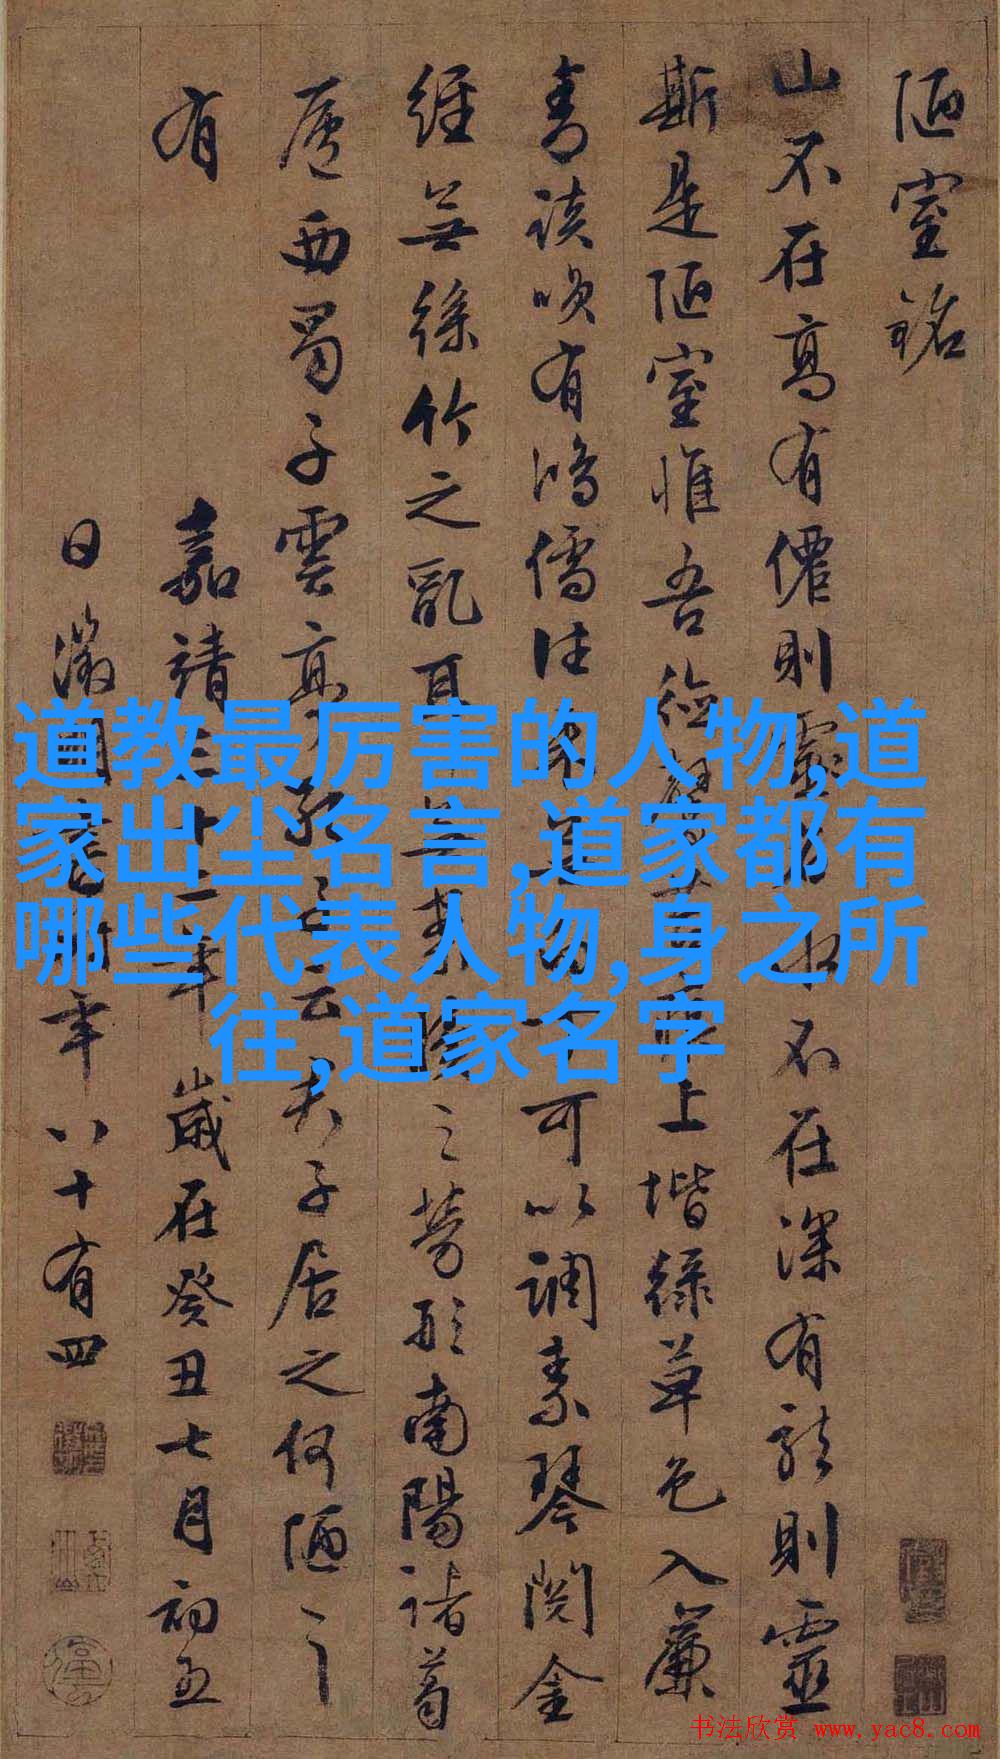 陋室銘
山不在高有僊則水不在深有龍則靈
斯是陋室惟吾德馨苔痕上堦綠草色入簾
青談唉有鴻儒往来無白丁可以調素琴閱金
經無絲竹之亂耳無案牘之勞形南陽諸葛
廬西蜀子雲亭孔子云夫子居之何陋之
有
嘉靖三十二年歲在癸丑七月初五
日徵明書時年八十有四
道教最厉害的人物,道
家出尘名言,道家都有
哪些代表人物,身之所
往,道家名字
书法欣赏 www.yac8.com